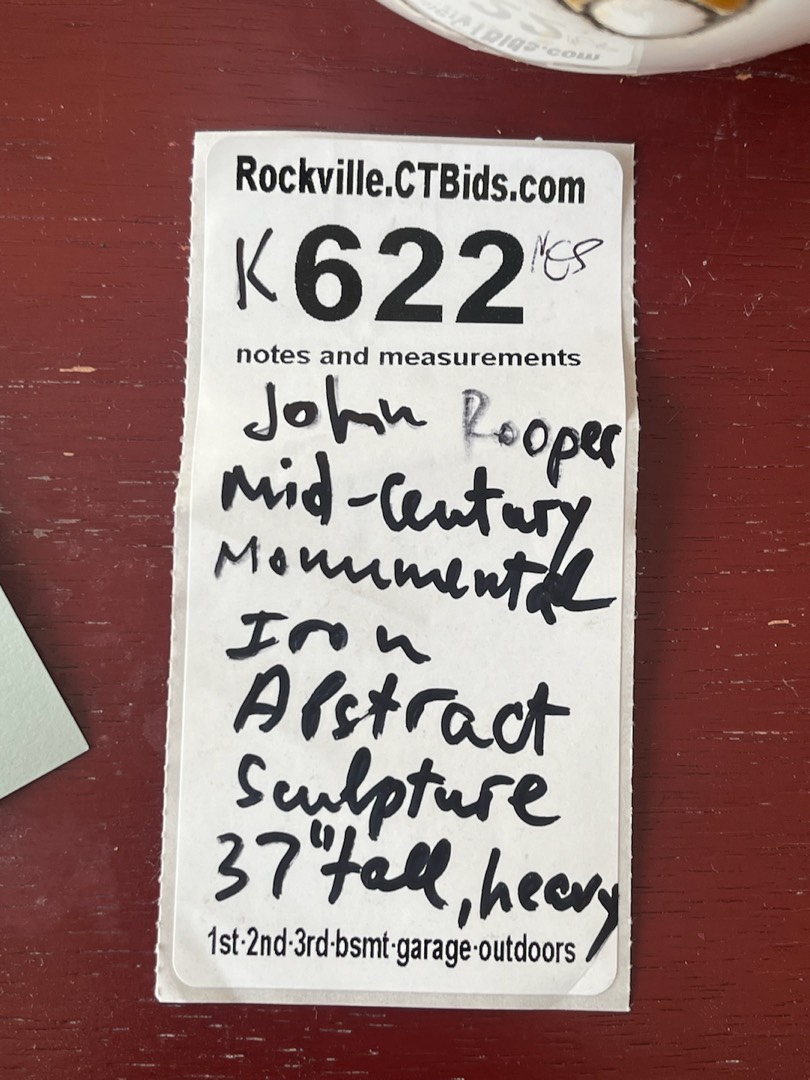 Rockville.CTBids.com
K 622
notes and measurements
John Rooper
Mid-Century
Monumental
Iron
Abstract
Sculpture
37" tall, heavy
1st·2nd·3rd·bsmt·garage·outdoors